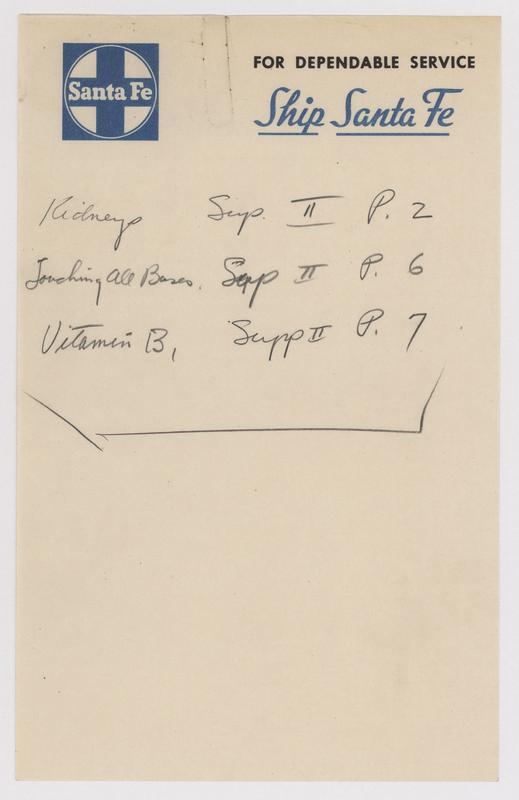 Santa Fe
FOR DEPENDABLE SERVICE
Ship Santa Fe
Kidneys Sup. II P. 2
Touching All Bases. Sup II P. 6
Vitamin B1 Supp II P. 7